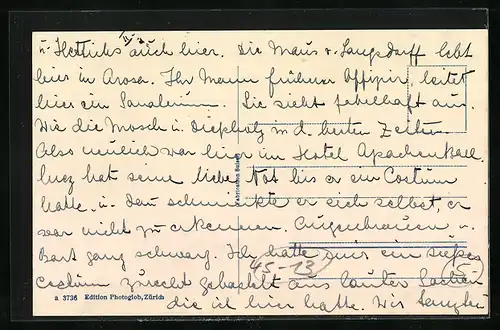 u. Hettichs auch hier. Die Maus v. Langsdorff lebt
hier in Arosa. Ihr Mann früher Offizier, leitet
hier ein Sanatorium. Sie sieht fabelhaft aus.
Wie die Mosch u. Diepholz in d. besten Zeiten.
Also neulich war hier im Hotel Apachenball.
hat seine liebe Not bis er ein Costüm
hatte u. dann schminkte er sich selbst, er
war nicht zu erkennen. Augenbrauen u.
Bart ganz schwarz. Ich hatte mir ein süßes
Costüm zurecht gebastelt aus lauter Sachen
die ich hier hatte. Wir
45-13
a 3736 Edition Photoglob, Zürich